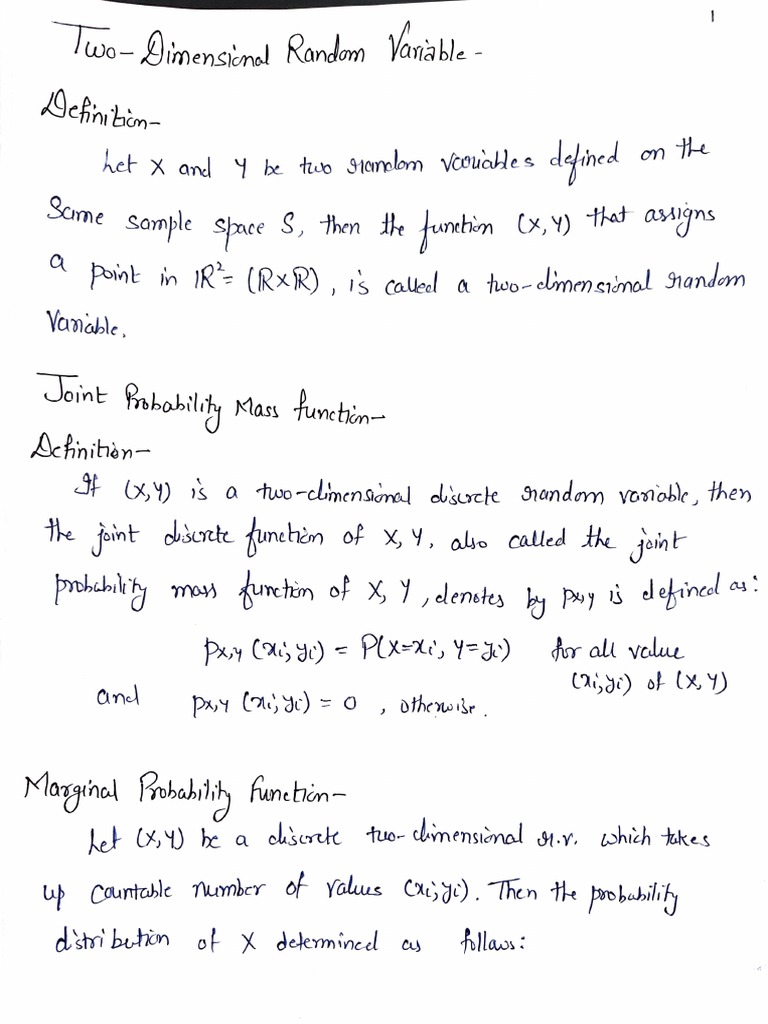 1
Two-Dimensional Random Variable-
Definition-
Let X and Y be two random variables defined on the
Same sample space S, then the function (X,Y) that assigns
a point in ℝ² = (ℝxℝ), is called a two-dimensional random
Variable.
Joint Probability Mass function-
Definition-
If (X,Y) is a two-dimensional discrete random variable, then
the joint discrete function of X, Y, also called the joint
probability mass function of X, Y, denotes by pX,Y is defined as:
pX,Y (xi,yi) = P(X=xi, Y=yi) for all value
(xi,yi) of (X,Y)
and pX,Y (xi,yi) = 0 , otherwise.
Marginal Probability function-
Let (X,Y) be a discrete two-dimensional r.v. which takes
up countable number of values (xi,yi). Then the probability
distribution of X determined as follows: